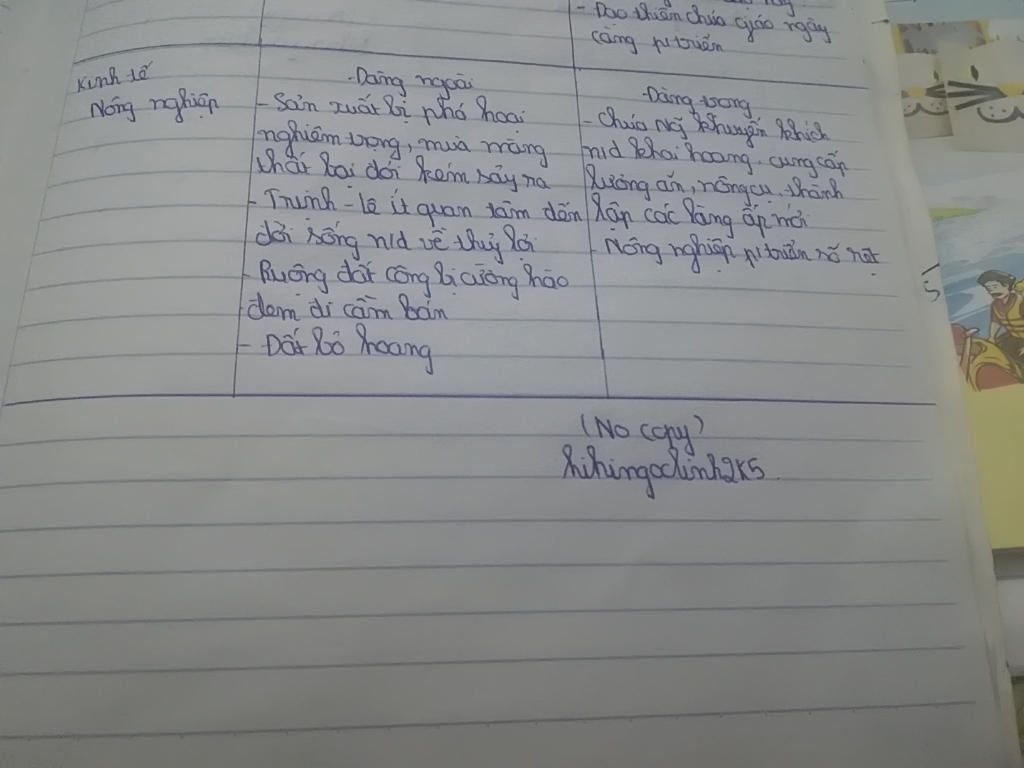 - Đạo thiên chúa giáo ngày
càng p.triển
Kinh tế
Nông nghiệp
- Đàng ngoài
- Sản xuất bị phá hoại
nghiêm trọng, mùa màng
thất bại đói kém sảy ra
- Trịnh - Lê ít quan tâm đến
đời sống n/d về thủy lợi
- Ruộng đất công bị cường hào
đem đi cầm bán
- Đất bỏ hoang
- Đàng trong
- Chúa Ng̃ khuyến khích
n/d khai hoang, cung cấp
lương ăn, nông cụ, thành
lập các làng ấp mới
- Nông nghiệp p.triển rõ rệt
(No copy)
hihingoclinh2k5